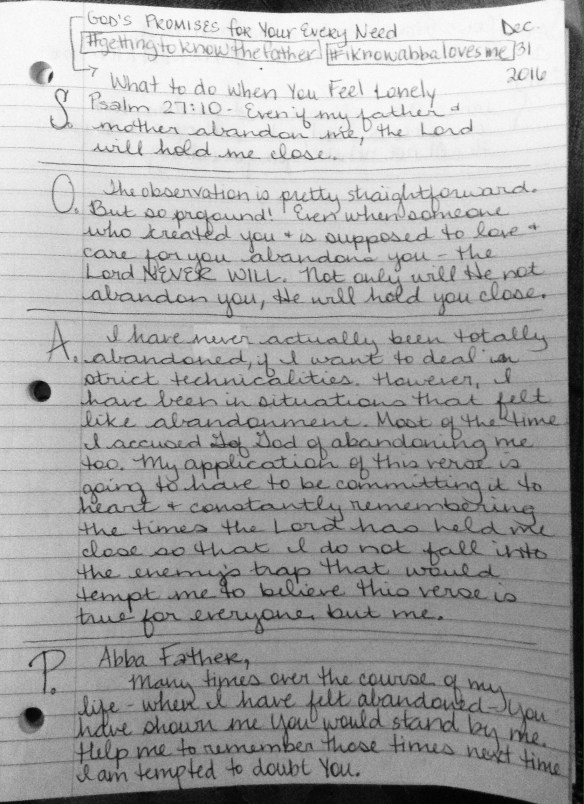 GOD'S PROMISES for Your Every Need
Dec.
#gettingtoknowthefather #iknowabbalovesme 31
2016
What to do when You Feel Lonely
S. Psalm 27:10 - Even if my father +
mother abandon me, the Lord
will hold me close.
O. The observation is pretty straightforward.
But so profound! Even when someone
who created you + is supposed to love +
care for you abandons you - the
Lord NEVER WILL. Not only will He not
abandon you, He will hold you close.
A. I have never actually been totally
abandoned, if I want to deal in
strict technicalities. However, I
have been in situations that felt
like abandonment. Most of the time
I accused God of abandoning me
too. My application of this verse is
going to have to be committing it to
heart + constantly remembering
the times the Lord has held me
close so that I do not fall into
the enemy's trap that would
tempt me to believe this verse is
true for everyone but me.
P. Abba Father,
Many times over the course of my
life - when I have felt abandoned - You
have shown me You would stand by me.
Help me to remember those times next time
I am tempted to doubt You.